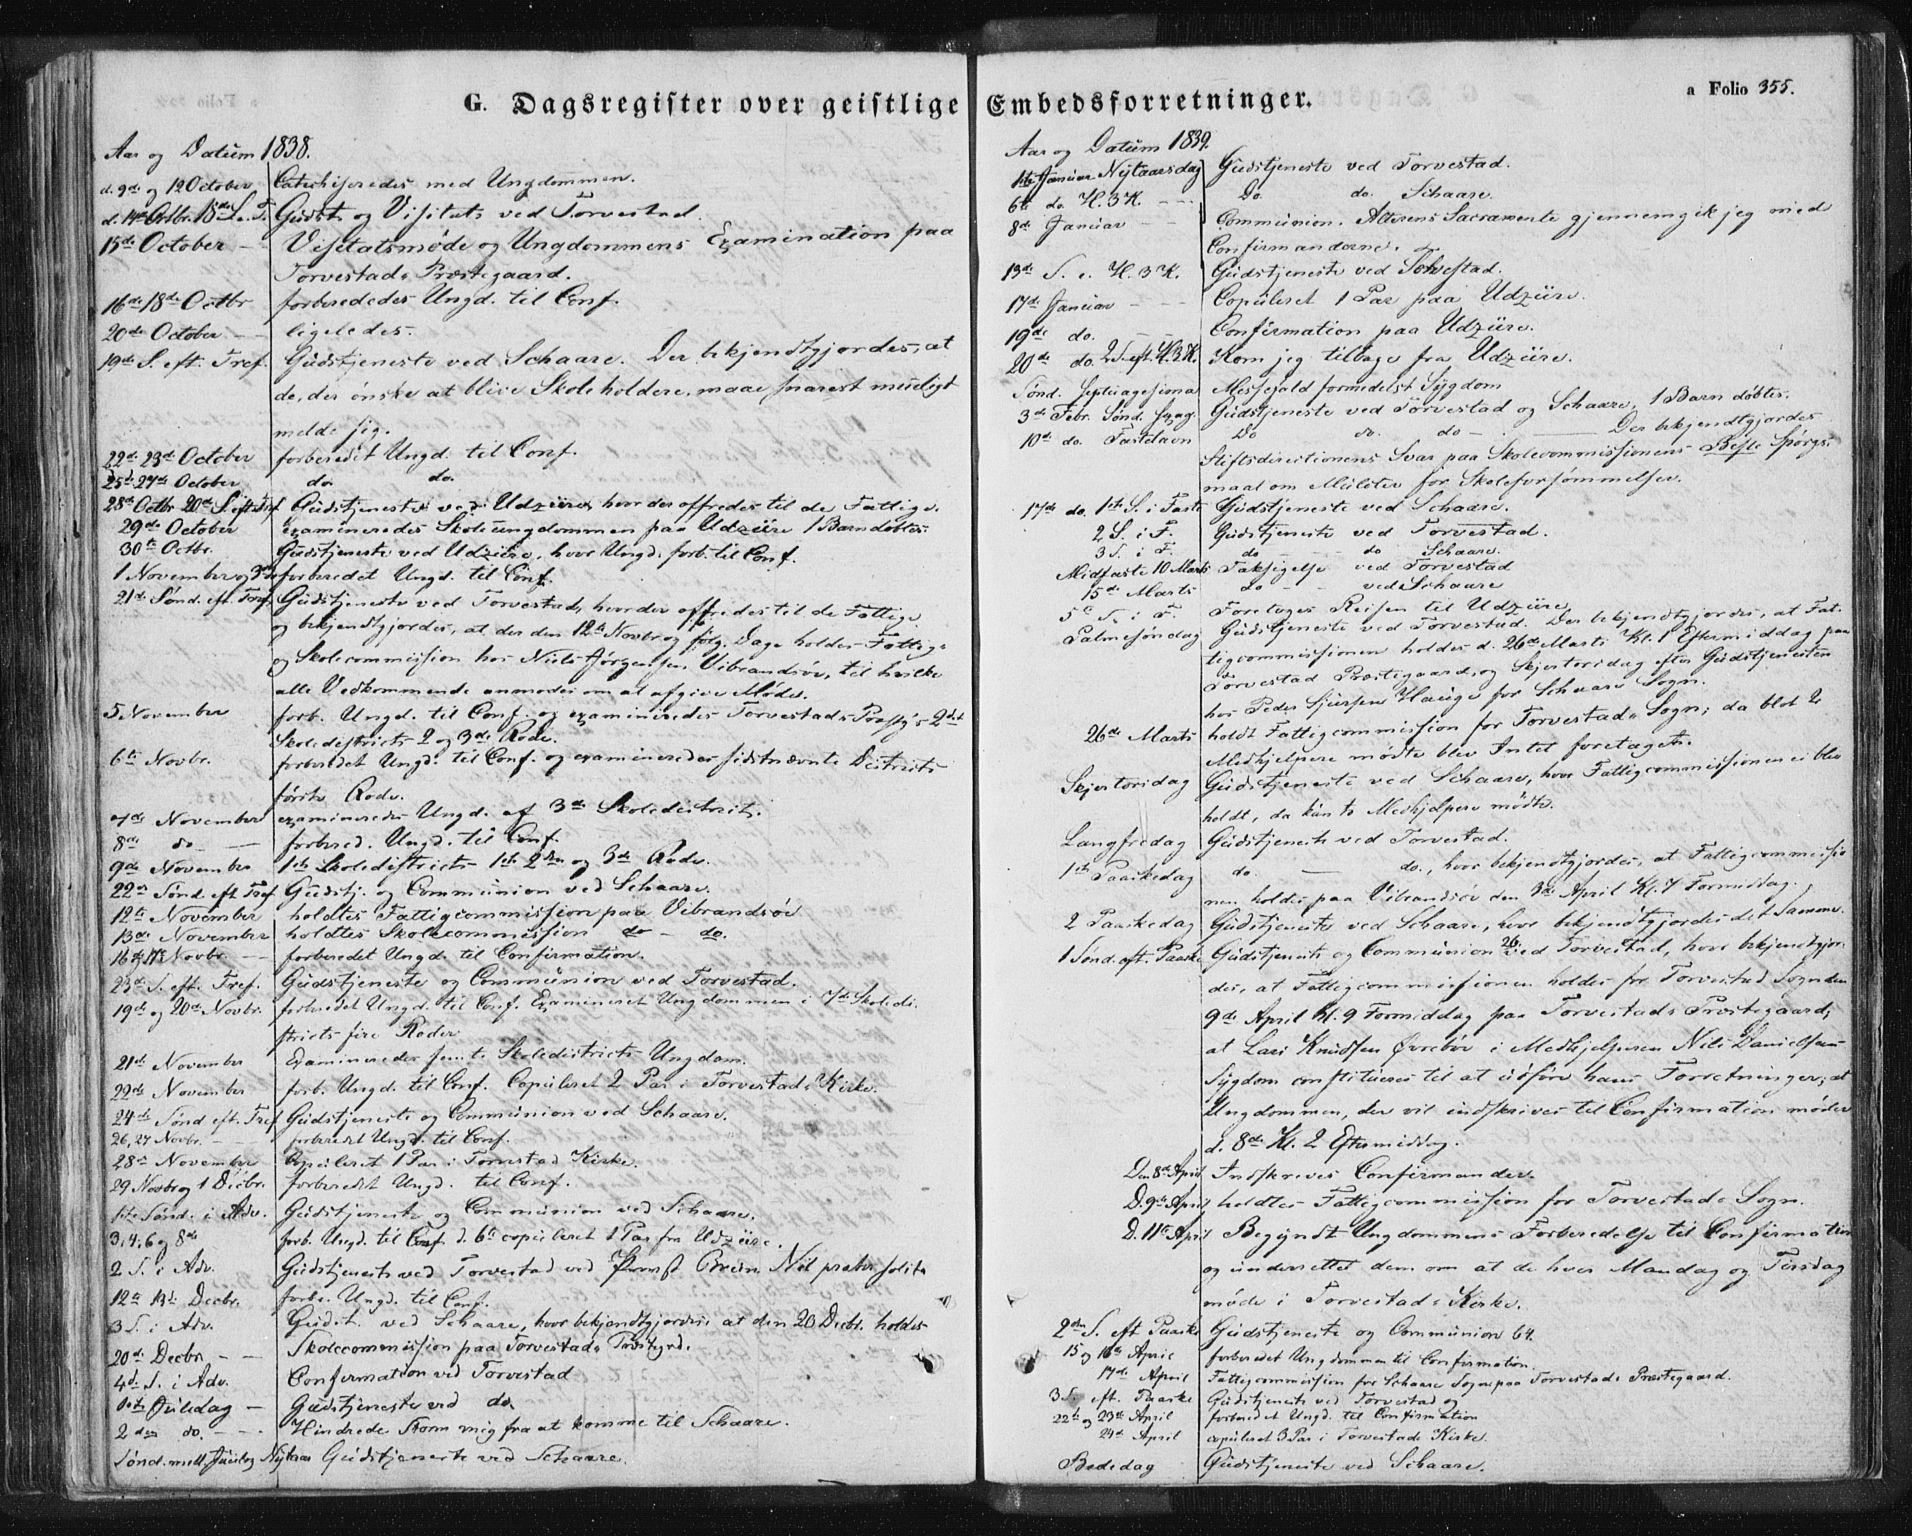 G. Dagsregister over geistlige Embedsforretninger.
a Folio 355.
Aar og Datum 1838.
d. 9de og 12 October Catechiseredes med Ungdommen.
d. 14de Octbr. 18de S. e. T. Gudst. og Visitats ved Torvestad.
15de October – Visitatsmøde og Ungdommens Examination paa
Torvestads Præstegaard.
16de 18de Octbr forberededes Ungd. til Conf.
20de October – – ligeledes.
19de S. eft. Tref. Gudstjeneste ved Schaare. Der bekjendtgjordes, at
de, der ønske at blive Skoleholdere, maae snarest mueligt
melde sig.
22de 23de October forberedet Ungd. til Conf.
25de 27de October do. do.
28de Octbr 20de S. eft. Tref. Gudstjeneste ved Udzüre, hvor der offredes til de Fattige.
29de October examineredes Skoleungdommen paa Udzüre 1 Barn døbtes.
30te Octbr. Gudstjeneste ved Udzüre, hvor Ungd. forb. til Conf.
1 November og 3de forberedet Ungd. til Conf.
21de Sønd. eft. Tref. Gudstjeneste ved Torvestad, hvor der offredes til de Fattige.
og bekjendtgjordes, at der den 12te Novbr og følg. Dage holdes Fattig-
og Skolecommission hos Niels Jørgensen Vibrandsøe, til hvilke
alle Vedkommende anmodes om at afgive Møde.
5 November forb. Ungd. til Conf. og examineredes Torvestads Præstgs 2det
Skoledistricts 2 og 3de Rode.
6te Novbr. forberedet Ungd. til Conf. og examineredes sidstnævnte Districts
første Rode.
7de November examineredes Ungd. af 3de Skoledistrict.
8de do – forbered. Ungd. til Conf.
9de November 1ste Skoledistricts 1ste 2den og 3de Rode.
22de Sønd. eft Tref Gudstj. og Communion ved Schaare.
12te November holdtes Fattigcommission paa Vibrandsøe
13de November holdtes Skolecommission do – do.
16 og 17de Novbr. – forberedet Ungd. til Confirmation.
23de S. eft. Tref. Gudstjeneste og Communion ved Torvestad.
19de og 20de Novbr. forberedet Ungd. til Conf. Examineret Ungdommen i 7de Skoledi-
stricts fire Roder
21de November Examineredes femte Skoledistricts Ungdom.
22de November forb. Ungd. til Conf. Copuleret 2 Par i Torvestads Kirke.
24de Sønd eft. Tref Gudstjeneste og Communion ved Schaare.
26, 27 Novbr. – – forberedet Ungd. til Conf.
28de November Copuleret 1 Par i Torvestad Kirke.
29 Novbr og 1 Decbr. forberedet Ungd. til Conf.
1ste Sønd. i Adv. Gudstjeneste og Communion ved Schaare.
3, 4, 6 og 8de forb. Ungd. til Conf. d. 6te copuleret 1 Par fra Udzüre.
2 S. i Adv. Gudstjeneste ved Torvestad ved Provst Nil præter solita
12te 13de Decbr. forb. Ungd. til Conf.
3 S. i Adv. Gudst. ved Schaare, hvor bekjendtgjordes at den 20 Decbr. holdes
20de Decbr. – – Skolecommission paa Torvestads Præstgrd.
4de S. i Adv. Confirmation ved Torvestad
1ste Juledag – Gudstjeneste ved do.
2den do. – – – Hindrede Storm mig fra at komme til Schaare.
Sønd. mell. Juul og Nytaar Gudstjeneste ved Schaare.
Aar og Datum 1839.
1ste Januar Nytaarsdag Gudstjeneste ved Torvestad.
6te do. H. 3 K. – – – Do. do. Schaare.
8de Januar – Communion. Alterens Sacramente gjennemgik jeg med
Confirmanderne.
13de S. e. H. 3 K. Gudstjeneste ved Torvestad.
17de Januar – – – Copuleret 1 Par paa Udzüre.
19de do. – – – Confirmation paa Udzüre.
20de do. 2 S. eft. H. 3 K. Kom jeg tilbage fra Udzüre.
Sønd. Septuagesima Messefald formedelst Sygdom
3de Febr. Sønd. Sexag. Gudstjeneste ved Torvestad og Schaare, 1 Barn døbtes.
10de do. Fastelavn Do do. do – Der bekjendtgjordes
Stiftsdirectionens Svar paa Skolecommissionens Spørgs-
maal om Mulcter for Skoleforsømmelser.
17de do. 1ste S. i Faste Gudstjeneste ved Schaare.
2 S. i F. Gudstjeneste ved Torvestad.
3 S. i F. do – – – do Schaare.
Midfaste 10 Marts Taksigelse ved Torvestad
15de Marts do – – ved Schaare
5te S. i F. Foretoges Reisen til Udzüre.
Palmesøndag Gudstjeneste ved Torvestad. Der bekjendtgjordes, at Fat-
tigcommissionen holdes d. 26de Marts Kl. 1 Eftermiddag paa
Torvestad Præstegaard, og Skjertorsdag efter Gudstjenesten
hos Peder Sjursen Hauge for Schaare Sogn.
26de Marts holdt Fattigcommission for Torvestads Sogn; da blot 2
Medhjelpere mødte blev Intet foretaget.
Skjertorsdag Gudstjeneste ved Schaare, hvor Fattigcommissionen ei blev
holdt, da kun to Medhjelpere mødte.
Langfredag Gudstjeneste ved Torvestad.
1ste Paaskedag do. – do., hvor bekjendtgjordes, at Fattigcommissio
nen holdes paa Vibrandsøe den 3de April Kl. 7 Formiddag.
2 Paaskedag Gudstjeneste ved Schaare, hvor bekjendtgjordes det Samme.
1 Sønd. eft. Paaske Gudstjeneste og Communion 26. ved Torvestad, hvor bekjendtgjor-
des, at Fattigcommissionen holdes for Torvestad Sogn den
9de April Kl. 9 Formiddag paa Torvestads Præstegaard;
at Lars Knudsen Øvrebøe i Medhjelperen Nils Danielsens
Sygdom constitueres til at udføre hans Forretninger; at
Ungdommen, der vil indskrives til Confirmation møder
d. 8de Kl. 2 Eftermiddag.
Den 8de April Indskreves Confirmander.
D. 9de April holdtes Fattigcommission for Torvestads Sogn.
D. 11te April Begyndt Ungdommens Forberedelse til Confirmation
og underrettet dem om at de hver Mandag og Tirsdag
møde i Torvestads Kirke.
2den S. eft Paaske Gudstjeneste og Communion 64.
15 og 16de April forberedet Ungdommen til Confirmation.
17de April Fattigcommission for Schaare Sogn paa Torvestads Præstegaard.
3 S. eft. Paaske Gudstjeneste ved Torvestad og
22de og 23de April forberedet Ungd. til Confirmation
24de April copuleret 3 Par i Torvestads Kirke.
Bededag Gudstjeneste ved Schaare.